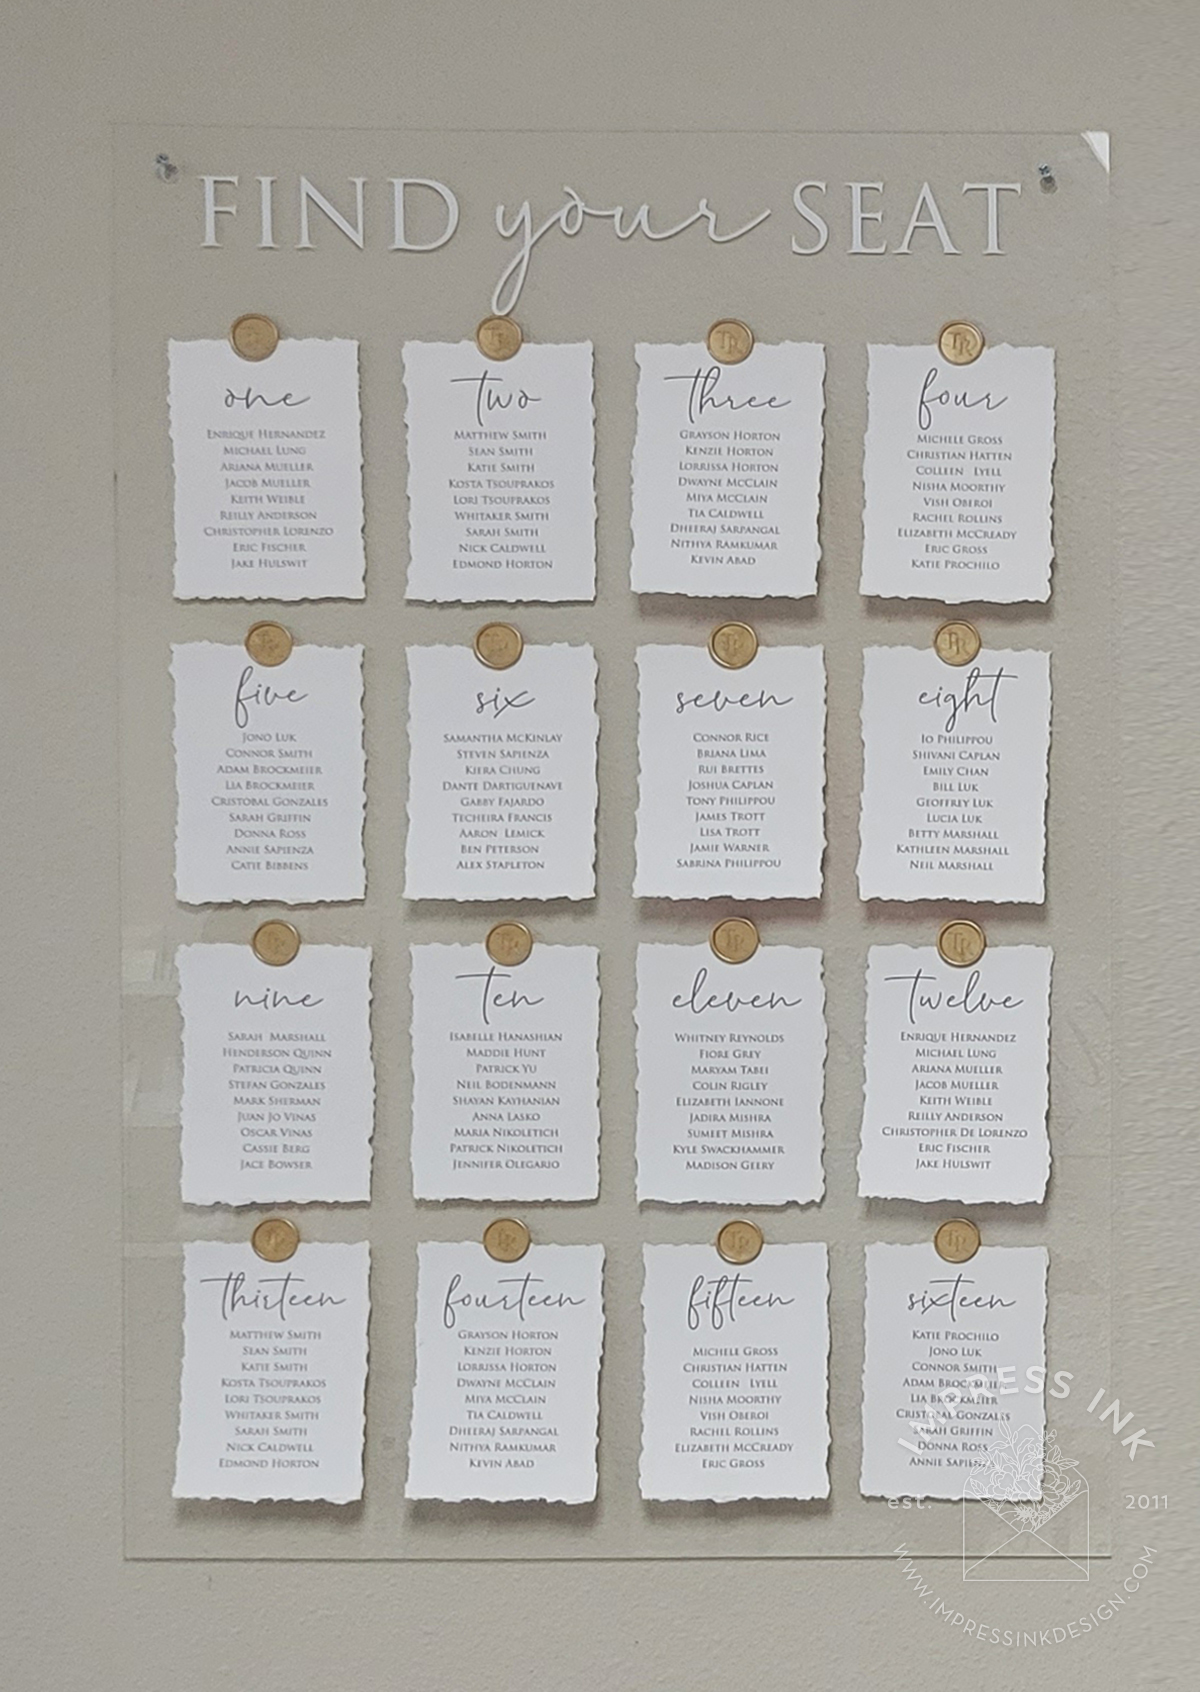 FIND your SEAT
one
ENRIQUE HERNANDEZ
MICHAEL LUNG
ARIANA MUELLER
JACOB MUELLER
KEITH WEIBLE
REILLY ANDERSON
CHRISTOPHER LORENZO
ERIC FISCHER
JAKE HULSWIT
two
MATTHEW SMITH
SEAN SMITH
KATIE SMITH
KOSTA TSOUPRAKOS
LORI TSOUPRAKOS
WHITAKER SMITH
SARAH SMITH
NICK CALDWELL
EDMOND HORTON
TR
three
GRAYSON HORTON
KENZIE HORTON
LORRISSA HORTON
DWAYNE MCCLAIN
MIYA MCCLAIN
TIA CALDWELL
DHEERAJ SARPANGAL
NITHYA RAMKUMAR
KEVIN ABAD
TR
four
MICHELE GROSS
CHRISTIAN HATTEN
COLLEEN LYELL
NISHA MOORTHY
VISH OBEROI
RACHEL ROLLINS
ELIZABETH MCCREADY
ERIC GROSS
KATIE PROCHILO
five
JONO LUK
CONNOR SMITH
ADAM BROCKMEIER
LIA BROCKMEIER
CRISTOBAL GONZALES
SARAH GRIFFIN
DONNA ROSS
ANNIE SAPIENZA
CATIE BIBBENS
six
SAMANTHA MCKINLAY
STEVEN SAPIENZA
KIERA CHUNG
DANTE DARTIGUENAVE
GABBY FAJARDO
TECHEIRA FRANCIS
AARON LEMICK
BEN PETERSON
ALEX STAPLETON
seven
CONNOR RICE
BRIANA LIMA
RUI BRETTES
JOSHUA CAPLAN
TONY PHILIPPOU
JAMES TROTT
LISA TROTT
JAMIE WARNER
SABRINA PHILIPPOU
TR
eight
IO PHILIPPOU
SHIVANI CAPLAN
EMILY CHAN
BILL LUK
GEOFFREY LUK
LUCIA LUK
BETTY MARSHALL
KATHLEEN MARSHALL
NEIL MARSHALL
nine
SARAH MARSHALL
HENDERSON QUINN
PATRICIA QUINN
STEFAN GONZALES
MARK SHERMAN
JUAN JO VINAS
OSCAR VINAS
CASSIE BERG
JACE BOWSER
ten
ISABELLE HANASHIAN
MADDIE HUNT
PATRICK YU
NEIL BODENMANN
SHAYAN KAYHANIAN
ANNA LASKO
MARIA NIKOLETICH
PATRICK NIKOLETICH
JENNIFER OLEGARIO
eleven
WHITNEY REYNOLDS
FIORE GREY
MARYAM TABEI
COLIN RIGLEY
ELIZABETH IANNONE
JADIRA MISHRA
SUMEET MISHRA
KYLE SWACKHAMMER
MADISON GEERY
TR
twelve
ENRIQUE HERNANDEZ
MICHAEL LUNG
ARIANA MUELLER
JACOB MUELLER
KEITH WEIBLE
REILLY ANDERSON
CHRISTOPHER DE LORENZO
ERIC FISCHER
JAKE HULSWIT
thirteen
MATTHEW SMITH
SEAN SMITH
KATIE SMITH
KOSTA TSOUPRAKOS
LORI TSOUPRAKOS
WHITAKER SMITH
SARAH SMITH
NICK CALDWELL
EDMOND HORTON
fourteen
GRAYSON HORTON
KENZIE HORTON
LORRISSA HORTON
DWAYNE MCCLAIN
MIYA MCCLAIN
TIA CALDWELL
DHEERAJ SARPANGAL
NITHYA RAMKUMAR
KEVIN ABAD
TR
fifteen
MICHELE GROSS
CHRISTIAN HATTEN
COLLEEN LYELL
NISHA MOORTHY
VISH OBEROI
RACHEL ROLLINS
ELIZABETH MCCREADY
ERIC GROSS
TR
sixteen
KATIE PROCHILO
JONO LUK
CONNOR SMITH
ADAM BROCKMEIER
LIA BROCKMEIER
CRISTOBAL GONZALES
SARAH GRIFFIN
DONNA ROSS
ANNIE SAPIENZA
IMPRESS INK
est. 2011
WWW.IMPRESSINKDESIGN.COM